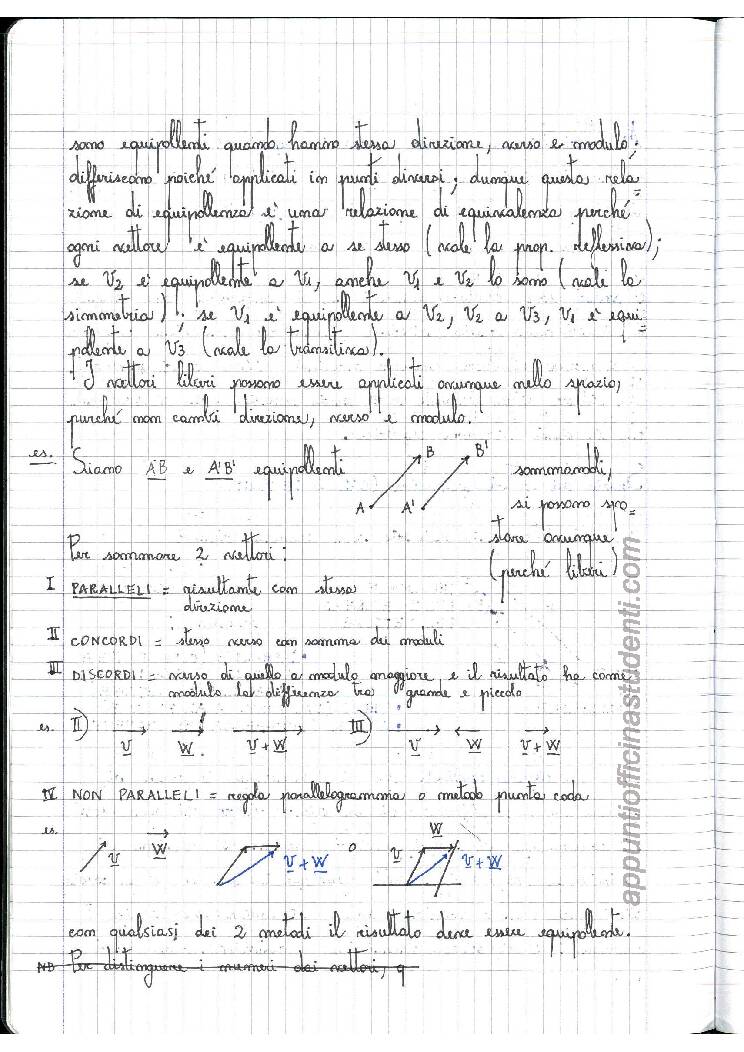 sono equipollenti quando hanno stessa direzione, verso e modulo;
differiscono poiché applicati in punti diversi; dunque questa rela=
zione di equipollenza e' una relazione di equivalenza perché
ogni vettore e' equipollente a se stesso (vale la prop. reflessiva);
se V2 e' equipollente a V1, anche V1 e V2 lo sono (vale la
simmetria); se V1 e' equipollente a V2, V2 a V3, V1 e' equi=
pollente a V3 (vale la transitiva).
I vettori liberi possono essere applicati ovunque nello spazio,
purché non cambi direzione, verso e modulo.
es. Siano AB e A'B' equipollenti
A B A' B'
sommandoli,
si possono spo=
stare ovunque
(perché liberi)
Per sommare 2 vettori:
I PARALLELI = risultante con stessa
direzione
II CONCORDI = stesso verso con somma dei moduli
III DISCORDI = verso di quello a modulo maggiore e il risultato ha come
modulo la differenza tra grande e piccolo
es. II) V W V+W III) V W V+W
IV NON PARALLELI = regola parallelogramma o metodo punta coda
es. V W V+W o V W V+W
con qualsiasi dei 2 metodi il risultato deve essere equipollente.
NB Per distinguere i numeri dai vettori, q
appuntiofficinastudenti.com